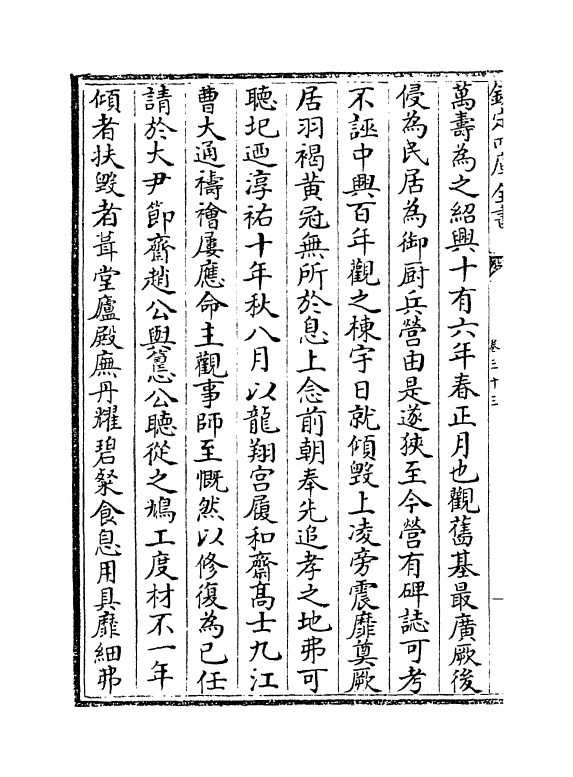 欽定四庫全書
卷三十三
萬壽為之紹興十有六年春正月也觀舊基最廣厥後
侵為民居為御厨兵營由是遂狹至今營有碑誌可考
不誣中興百年觀之棟宇日就傾毀上凌旁震靡奠厥
居羽褐黄冠無所於息上念前朝奉先追孝之地弗可
聽圮迺淳祐十年秋八月以龍翔宫履和齋髙士九江
曹大通禱禬屢應命主觀事師至慨然以修復為己任
請於大尹節齋趙公與𥲅公聽從之鳩工度材不一年
傾者扶毀者葺堂廬殿廡丹耀碧粲食息用具靡細弗